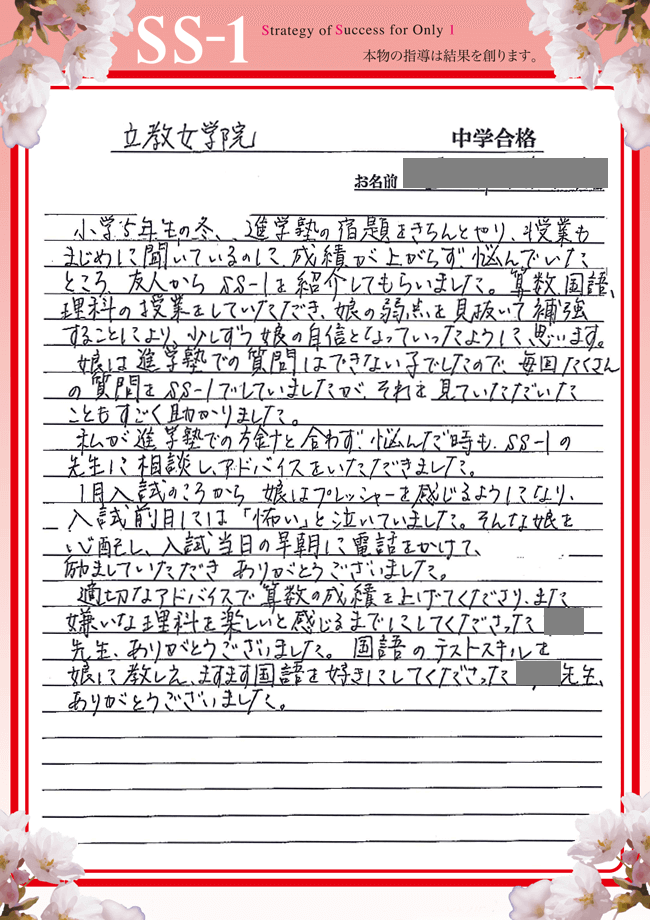 SS-1
Strategy of Success for Only 1
本物の指導は結果を創ります。
立教女学院
中学合格
お名前
小学5年生の冬、進学塾の宿題をきちんとやり、授業も
まじめに聞いているのに、成績が上がらず、悩んでいた
ところ、友人からSS-1を紹介してもらいました。算数、国語、
理科の授業をしていただき、娘の弱点を見抜いて補強
することにより、少しずつ娘の自信となっていったように思います。
娘は進学塾での質問はできない子でしたので、毎回たくさん
の質問をSS-1でしていましたが、それを見ていただいた
こともすごく助かりました。
私が進学塾での方針と合わず、悩んだ時も、SS-1の
先生に相談し、アドバイスをいただきました。
1月入試のころから娘はプレッシャーを感じるようになり、
入試前日には「怖い」と泣いていました。そんな娘を
心配し、入試当日の早朝に電話をかけて、
励ましていただき ありがとうございました。
適切なアドバイスで算数の成績を上げてくださり、また
嫌いな理科を楽しいと感じるまでにしてくださった
先生、ありがとうございました。国語のテストスキルを
娘に教え、ますます国語を好きにしてくださった 先生、
ありがとうございました。